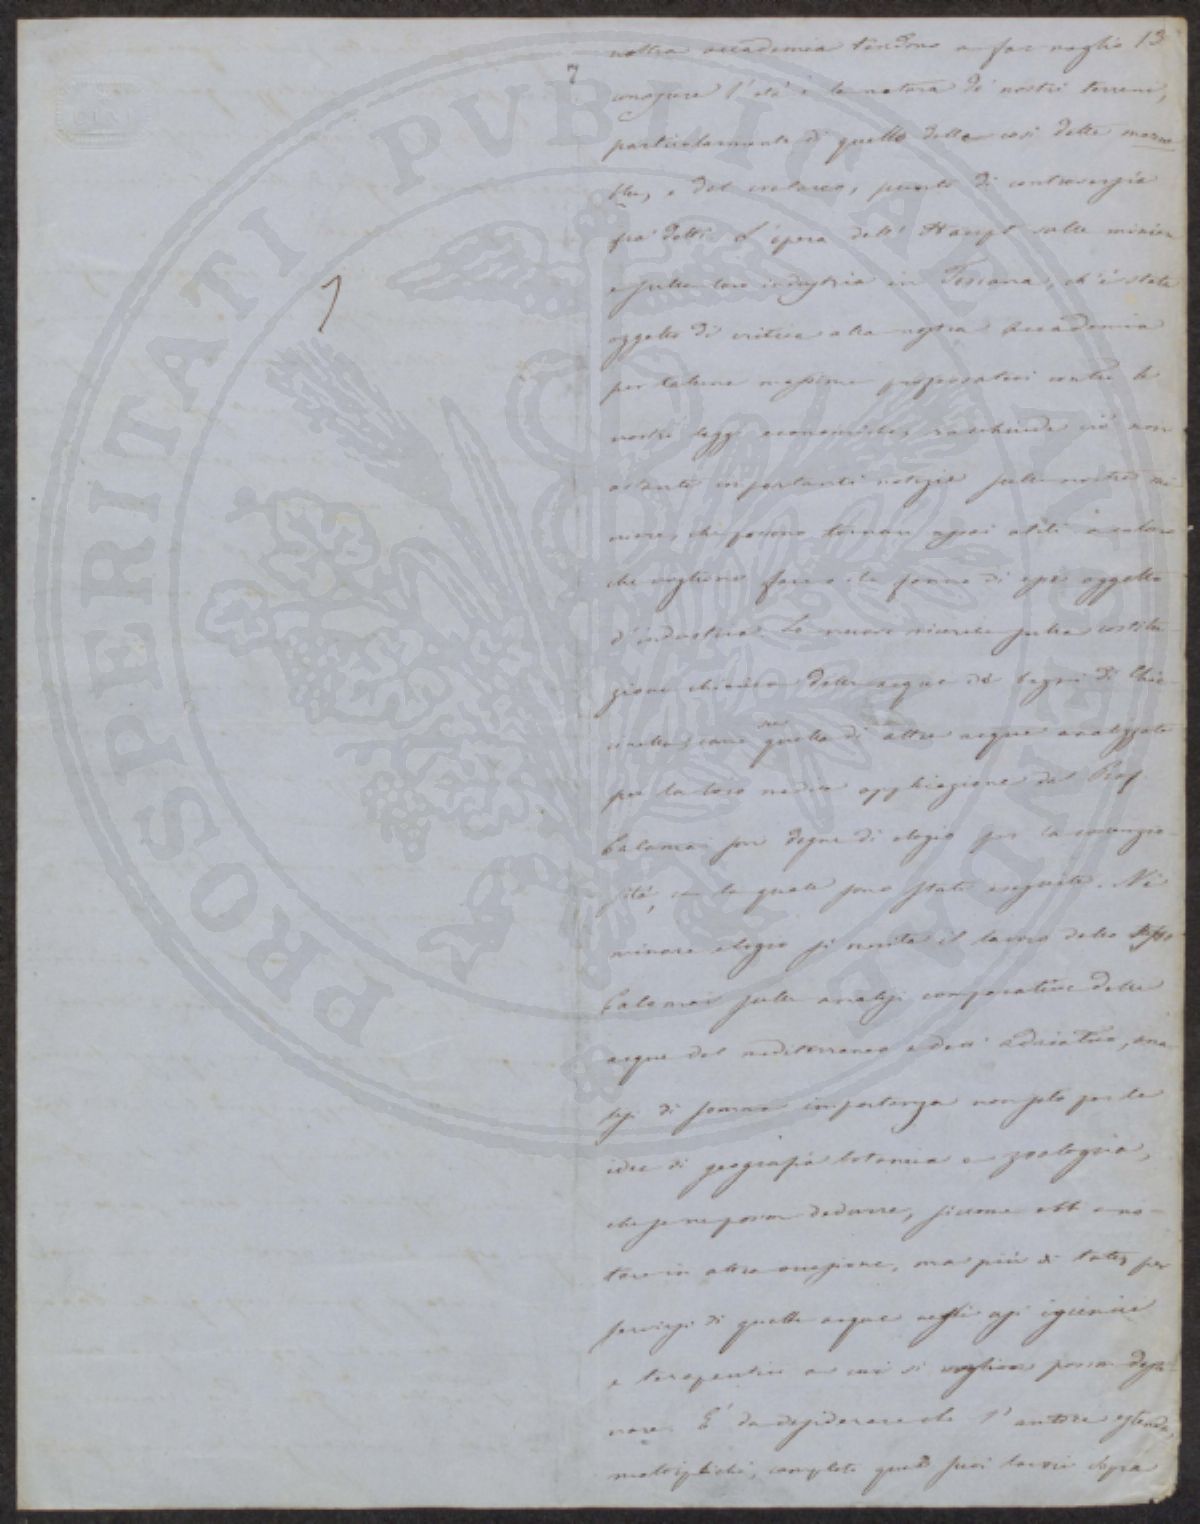 nostra accademia tendono a far meglio 13
7
conoscere l'età e la natura de' nostri terreni,
particolarmente di quello delle così dette marem
fra' dotti. L'opera dell' Haupt sulle minier
e sulla loro industria in Toscana, ch'è stata
oggetto di critica alla nostra Accademia
per talune massime
nostre leggi economiche, racchiude ciò non
ostante importanti notizie sulle nostre mi
niere, che possono tornare assai utili a coloro
che vogliono farne di esse oggetto
d'industria. Le nuove ricerche sulla costitu
zione chimica delle acque de' bagni di Chie
sulle
cinella, come quelle di altre acque analizzate
per la loro medica applicazione dal Prof.
Calamai son degne di elogio per la coscenzio
sità, con la quale sono state eseguite. Nè
minore elogio si merita il lavoro dello stesso
Calamai sulle analisi comparative delle
acque del mediterraneo e dell' adriatico, ana
lisi di somma importanza non solo per le
idee di geografia botanica e zoologica,
che se ne posson dedurre, siccome ebbi a no
tare in altra occasione, ma più di tutto pei
servigi di quelle acque negli usi igienici
e terapeutici a cui si vogliano posson desti
nare. E' da desiderare che l'autore estenda,
moltiplichi, completi questi suoi lavori sopra
PROSPERITATI PVBLICAE AVGENDAE